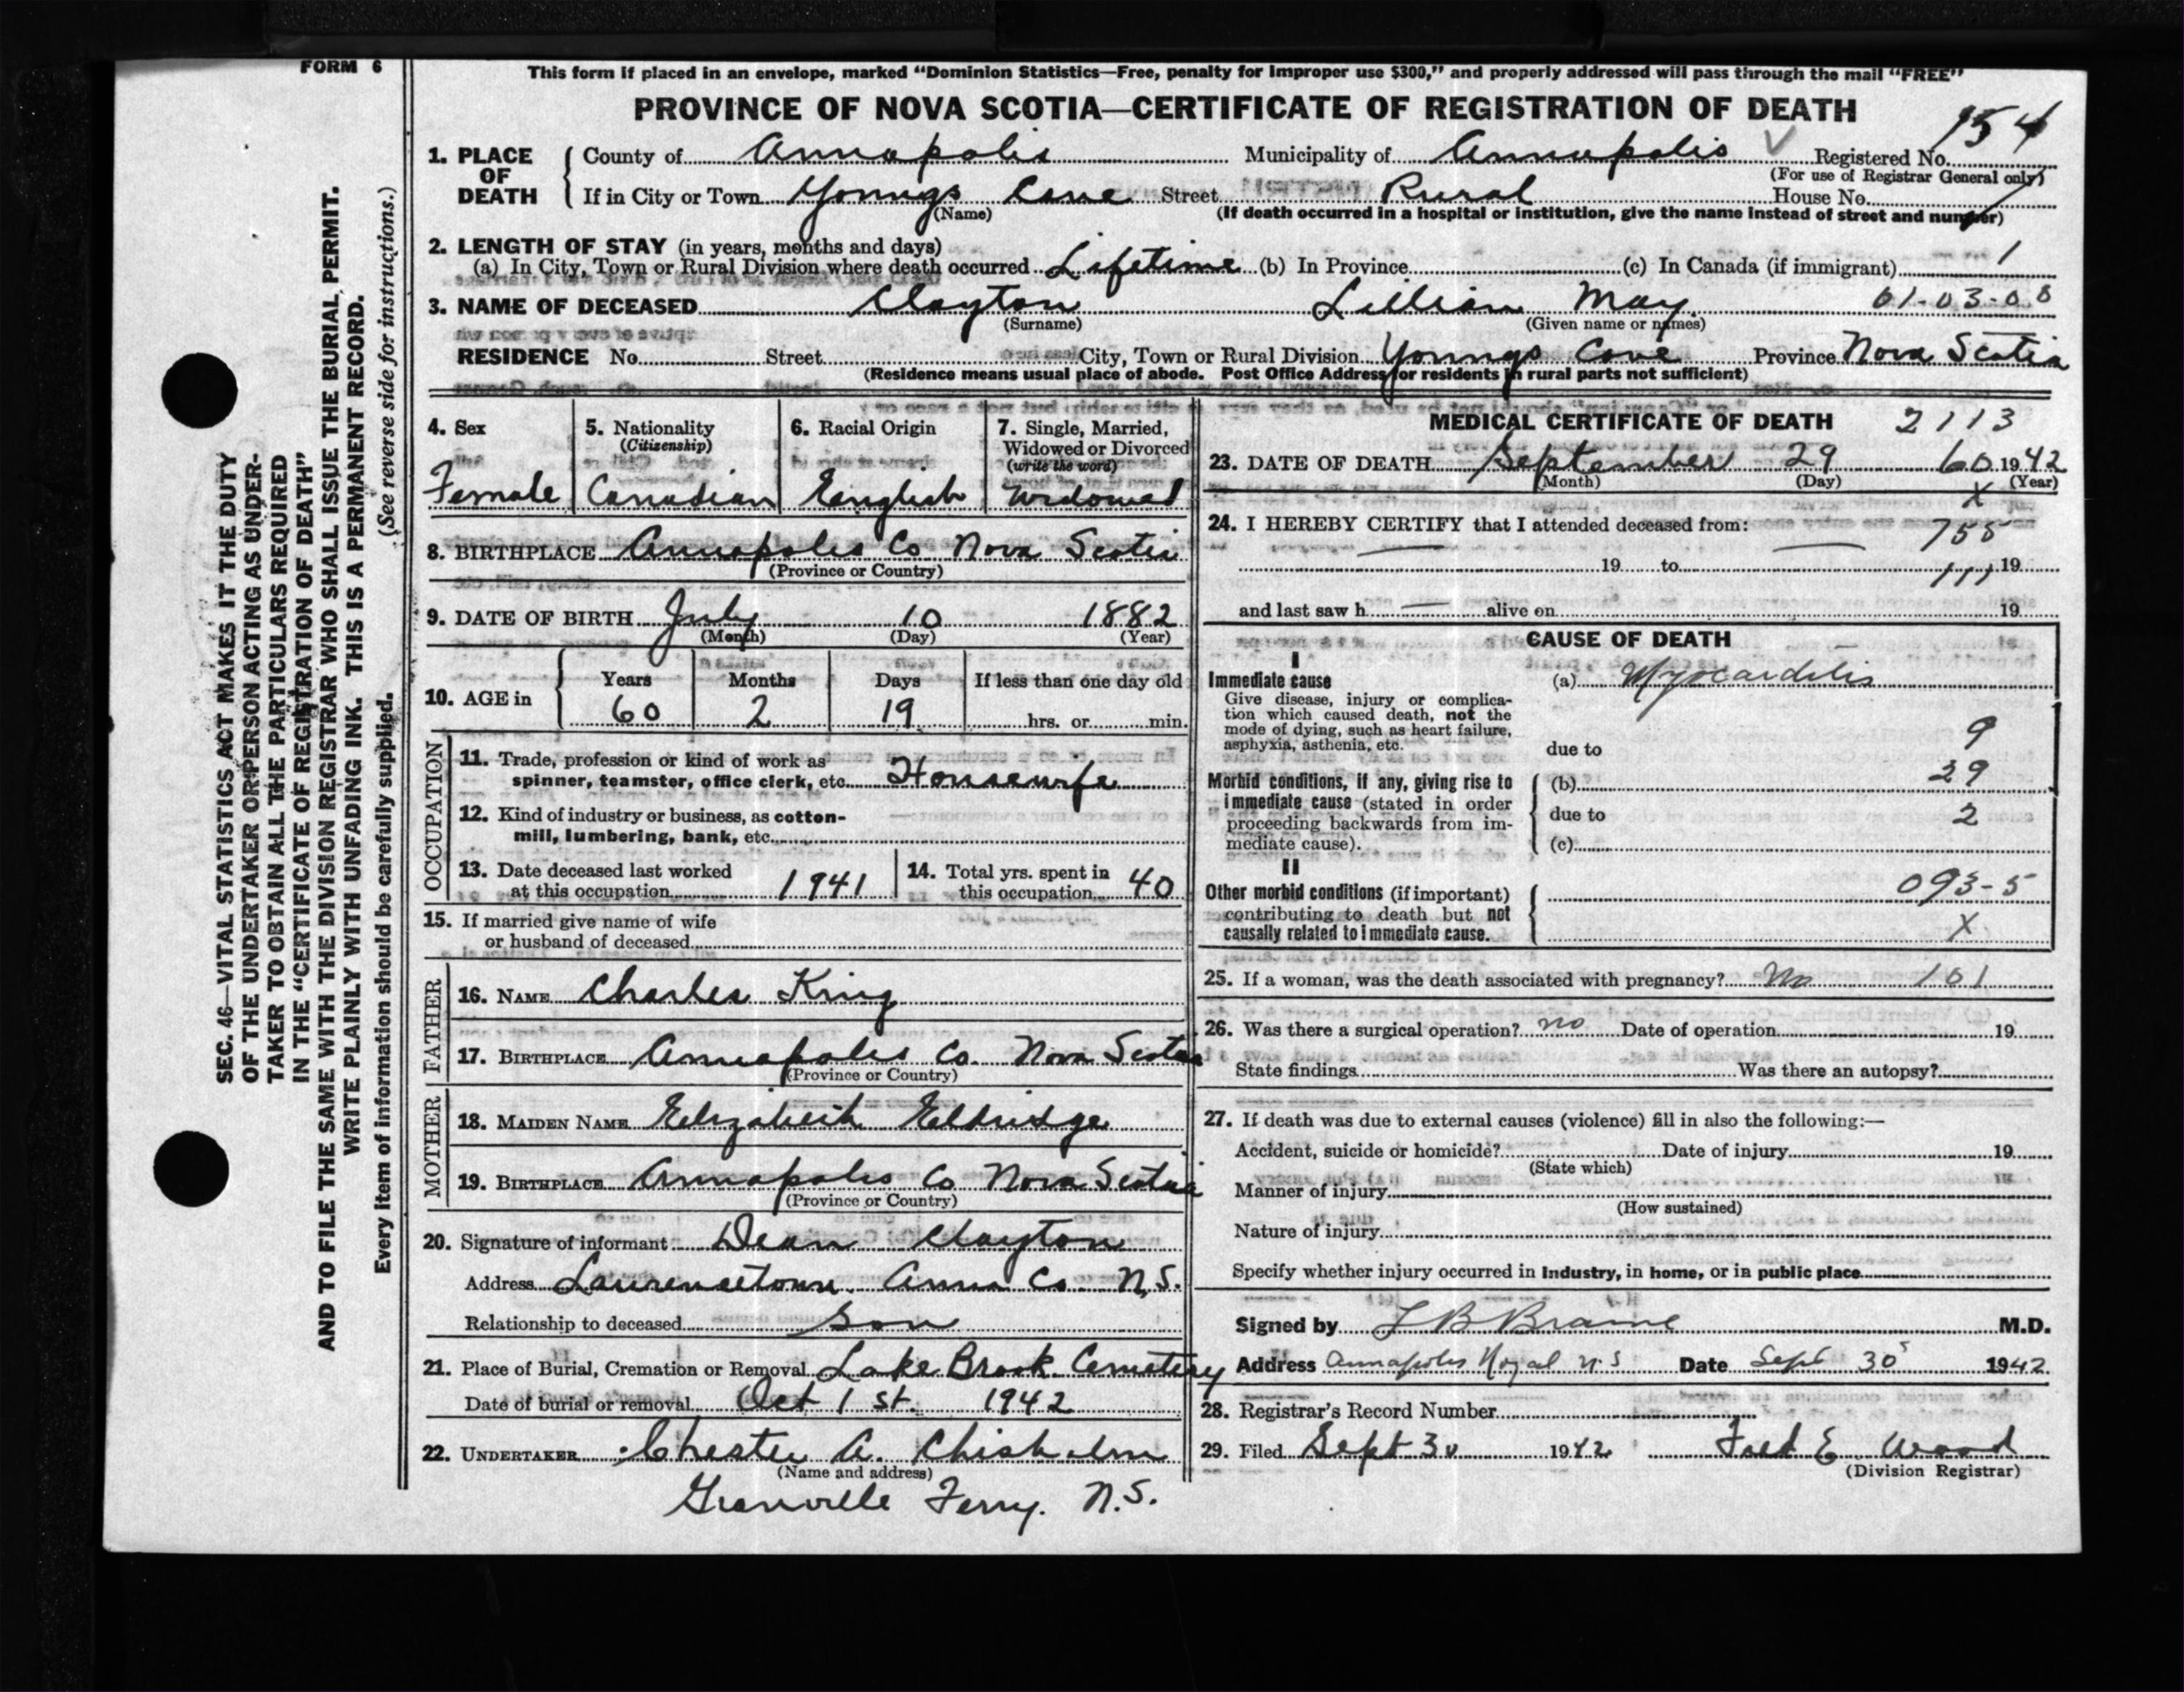 FORM 6
This form if placed in an envelope, marked "Dominion Statistics—Free, penalty for improper use $300," and properly addressed will pass through the mail "FREE"
PROVINCE OF NOVA SCOTIA—CERTIFICATE OF REGISTRATION OF DEATH
154
1. PLACE OF DEATH { County of Annapolis Municipality of Annapolis Registered No.
(For use of Registrar General only)
If in City or Town Youngs Cove Street Rural House No.
(Name) (If death occurred in a hospital or institution, give the name instead of street and number)
2. LENGTH OF STAY (in years, months and days)
(a) In City, Town or Rural Division where death occurred Lifetime (b) In Province (c) In Canada (if immigrant) 1
3. NAME OF DECEASED Clayton Lillian May 01-03-08
(Surname) (Given name or names)
RESIDENCE No. Street City, Town or Rural Division Youngs Cove Province Nova Scotia
(Residence means usual place of abode. Post Office Address for residents in rural parts not sufficient)
4. Sex 5. Nationality (Citizenship) 6. Racial Origin 7. Single, Married, Widowed or Divorced (write the word)
Female Canadian English Widowed
8. BIRTHPLACE Annapolis Co Nova Scotia
(Province or Country)
9. DATE OF BIRTH July 10 1882
(Month) (Day) (Year)
10. AGE in { Years Months Days If less than one day old
60 2 19 hrs. or min.
OCCUPATION
11. Trade, profession or kind of work as spinner, teamster, office clerk, etc. Housewife
12. Kind of industry or business, as cotton-mill, lumbering, bank, etc.
13. Date deceased last worked at this occupation 1941 14. Total yrs. spent in this occupation 40
15. If married give name of wife
or husband of deceased
FATHER
16. NAME Charles King
17. BIRTHPLACE Annapolis Co. Nova Scotia
(Province or Country)
MOTHER
18. MAIDEN NAME Elizabeth Eldridge
19. BIRTHPLACE Annapolis Co Nova Scotia
(Province or Country)
20. Signature of informant Dean Clayton
Address Laurencetown Anna Co. N.S.
Relationship to deceased son
21. Place of Burial, Cremation or Removal Lake Brook Cemetery
Date of burial or removal Oct 1 st. 1942
22. UNDERTAKER Chester A. Chisholm
(Name and address)
Granville Ferry. N.S.
MEDICAL CERTIFICATE OF DEATH 2113
23. DATE OF DEATH September 29 60 1942
(Month) (Day) (Year)
X
24. I HEREBY CERTIFY that I attended deceased from:
755
19 to 111 19
and last saw h — alive on 19
CAUSE OF DEATH
I
Immediate cause (a) Myocarditis
Give disease, injury or complication which caused death, not the mode of dying, such as heart failure, asphyxia, asthenia, etc.
9
due to
29
Morbid conditions, if any, giving rise to immediate cause (stated in order proceeding backwards from immediate cause). { (b)
due to 2
(c)
II
Other morbid conditions (if important) contributing to death but not causally related to immediate cause. { 093-5
X
25. If a woman, was the death associated with pregnancy? No 101
26. Was there a surgical operation? no Date of operation 19
State findings Was there an autopsy?
27. If death was due to external causes (violence) fill in also the following:—
Accident, suicide or homicide? Date of injury 19
(State which)
Manner of injury
(How sustained)
Nature of injury
Specify whether injury occurred in industry, in home, or in public place
Signed by L B Braine M.D.
Address Annapolis Royal N.S Date Sept 30 1942
28. Registrar's Record Number
29. Filed Sept 30 1942 Fred E Wood
(Division Registrar)
SEC. 46—VITAL STATISTICS ACT MAKES IT THE DUTY
OF THE UNDERTAKER OR PERSON ACTING AS UNDER-
TAKER TO OBTAIN ALL THE PARTICULARS REQUIRED
IN THE "CERTIFICATE OF REGISTRATION OF DEATH"
AND TO FILE THE SAME WITH THE DIVISION REGISTRAR WHO SHALL ISSUE THE BURIAL PERMIT.
WRITE PLAINLY WITH UNFADING INK. THIS IS A PERMANENT RECORD.
Every item of information should be carefully supplied. (See reverse side for instructions.)